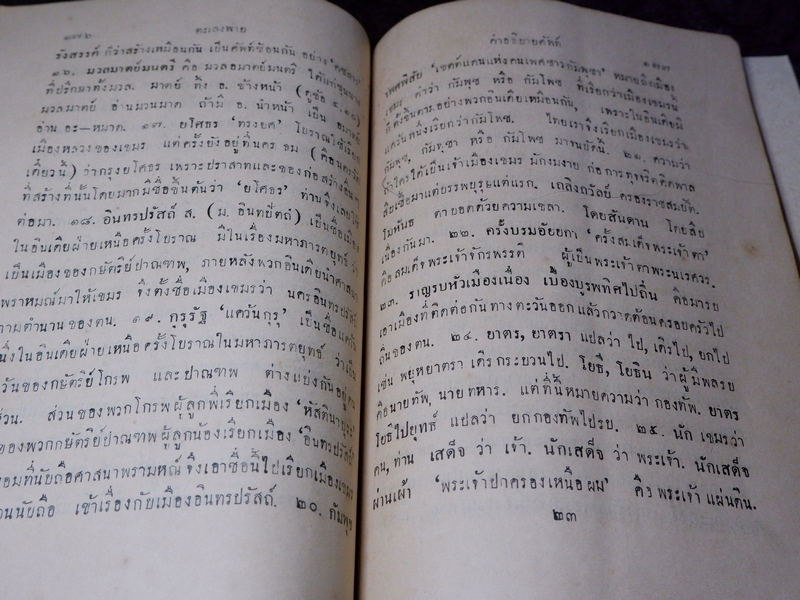 ตะเลงพ่าย
รังสรรค์ ก็ว่าสร้างเหมือนกัน เป็นศัพท์ซ้อนกัน อย่าง
๑๖. มวลมาตย์มนตรี คือ มวลอมาตย์มนตรี ได้แก่ขุนนาง
ที่ปรึกษาทั้งมวล. มาตย์ ทิ้ง อ. ข้างหน้า
มวลมาตย์ อ่านมวนมาด ถ้ามี อ. นำหน้า เป็น อมาตย์
อ่าน อะ–หมาด. ๑๗. ยโศธร 'ทรงยศ' โบราณใช้เรียก
เมืองหลวงของเขมร แต่ครั้งยังอยู่ที่นคร ธม (คือนคร
เดี๋ยวนี้) ว่ากรุงยโศธร เพราะปราสาทและของก่อสร้างอื่นๆ
ที่สร้างที่นั้นโดยมากมีชื่อขึ้นต้นว่า 'ยโศธร' ท่านจึงเลยใช้
ต่อมา. ๑๘. อินทรปรัสถ์ ส. (ม. อินทปัตถ์) เป็นชื่อเมือง
ในอินเดียฝ่ายเหนือครั้งโบราณ มีในเรื่องมหาภารตยุทธ์ ว่า
เป็นเมืองของกษัตริย์ปาณฑพ, ภายหลังพวกอินเดียนำศาสนา
พราหมณ์มาให้เขมร จึงตั้งชื่อเมืองเขมรว่า นครอินทรปรัสถ์
ตามตำนานของตน. ๑๙. กุรุรัฐ 'แคว้นกุรุ' เป็นชื่อแคว้น
หนึ่งในอินเดียฝ่ายเหนือครั้งโบราณในมหาภารตยุทธ์ ว่าเป็น
แคว้นของกษัตริย์โกรพ และปาณฑพ ต่างแบ่งกันอยู่คน
ส่วน. ส่วนของพวกโกรพผู้ลูกพี่เรียกเมือง 'หัสตินาปุระ'
ของพวกกษัตริย์ปาณฑพผู้ลูกน้องเรียกเมือง 'อินทรปรัสถ์'
ขอมที่นับถือศาสนาพราหมณ์จึงเอาชื่อนี้ไปเรียกเมืองเขมร
นับถือ เข้าเรื่องกับเมืองอินทรปรัสถ์. ๒๐. กัมพุช
คำอธิบายศัพท์
๑๗๗
พิสัย 'เขตต์แดนแห่งคนเพศชาวกัมพุชา' หมายถึงเมือง
เขมร คำว่า กัมพุช หรือ กัมโพช ที่เรียกว่าเมืองเขมรนั้น
ก็ตั้งขึ้นตามอย่างพวกอินเดียเหมือนกัน, เพราะในอินเดียมี
แคว้นหนึ่งเรียกว่ากัมโพช. ไทยเราจึงเรียกเมืองเขมรว่า
กัมพุช, กัมพุชา หรือ กัมโพช มาจนบัดนี้. ๒๑. ความว่า
ถ้าใครได้เป็นเจ้าเมืองเขมร มักงมงาย ก่อการทุจริตคิดพาล
สืบเชื้อมาแต่บรรพบุรุษแต่แรก. เถลิงถวัลย์ ครองราชสมบัติ.
โมหันธ์ ตาบอดด้วยความเขลา. โดยสันดาน โดยสืบ
เนื่องกันมา. ๒๒. ครั้งบรมอัยยกา 'ครั้งสมเด็จพระเจ้าตา'
คือสมเด็จพระเจ้าจักรพรรดิ ผู้เป็นพระเจ้าตาพระนเรศวร.
๒๓. ราญรบหัวเมืองเนื่อง เบื้องบุรพทิศไปถิ่น คือมารบ
เอาเมืองที่ติดต่อกันทางตะวันออก แล้วกวาดต้อนครอบครัวไป
ถิ่นของตน. ๒๔. ยาตร, ยาตรา แปลว่า ไป, เดิรไป, ยกไป
เช่น พยุหยาตรา เดิรกระบวนไป. โยธี, โยธิน ว่าผู้มีพลรบ
คือนายทัพ, นายทหาร. แต่ที่นี้หมายความว่า กองทัพ. ยาตร
โยธีไปยุทธ์ แปลว่า ยกกองทัพไปรบ. ๒๕. นัก เขมรว่า
คน, ท่าน เสด็จ ว่า เจ้า. นักเสด็จ ว่า พระเจ้า. นักเสด็จ
ผ่านเผ้า 'พระเจ้าปกครองเหนือผม' คือพระเจ้าแผ่นดิน.
๒๓